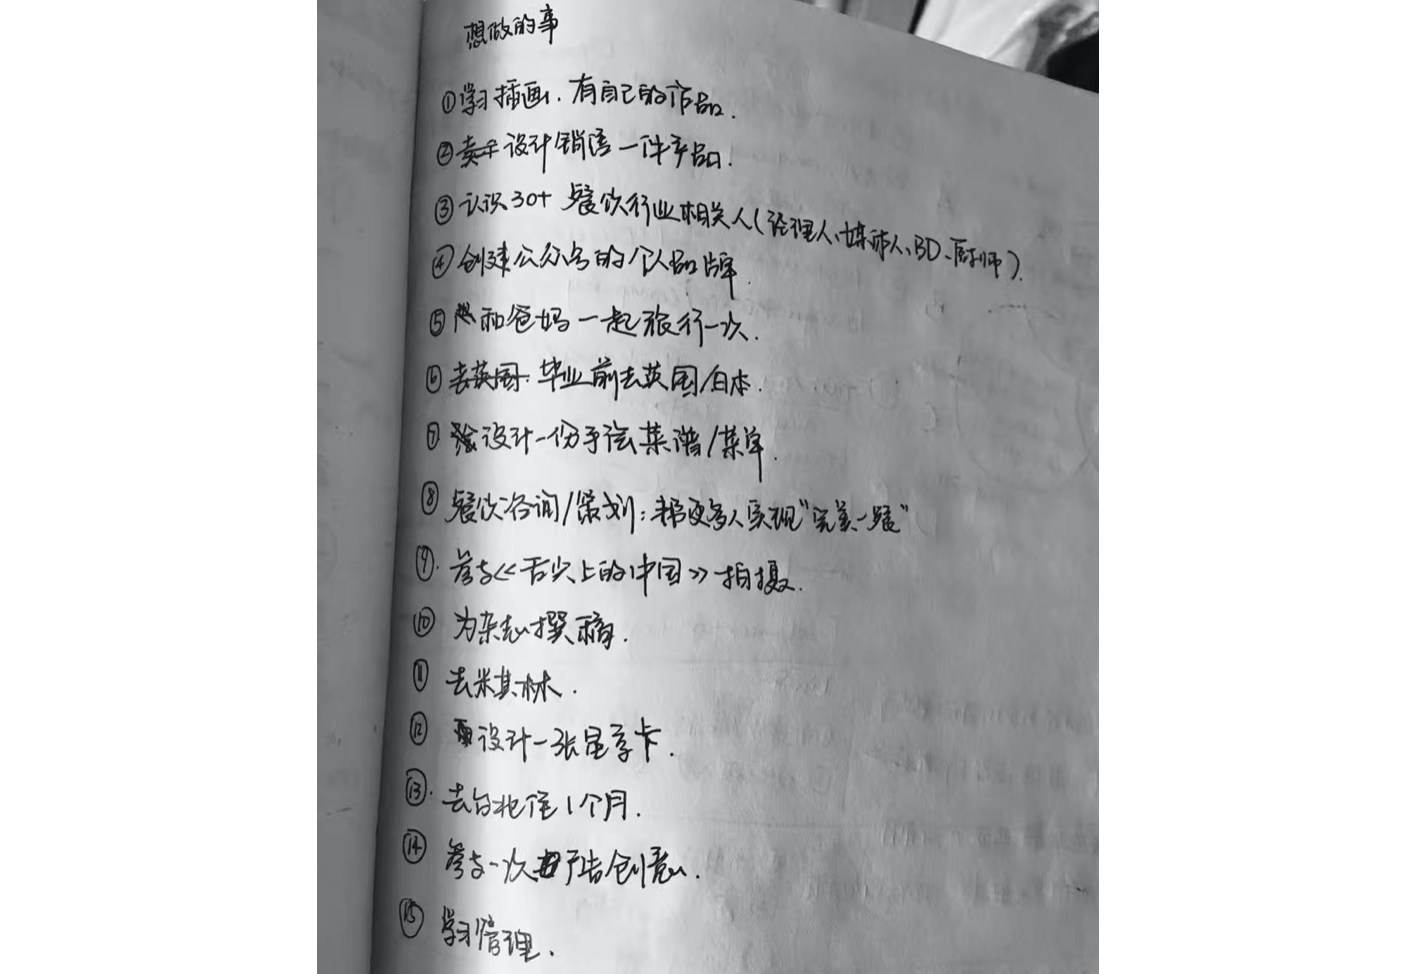 想做的事
①学习插画.有自己的作品.
②设计销售一件产品.
③认识30+餐饮行业相关人(经理人、媒体人、BD、厨师).
④创建公众号的个人品牌.
⑤和爸妈一起旅行一次.
⑥去英国.毕业前去英国/日本.
⑦设计一份手绘菜谱/菜单.
⑧餐饮咨询/策划:帮更多人实现"完美一餐"
⑨.参与《舌尖上的中国》拍摄.
⑩为杂志撰稿.
⑪去米其林.
⑫设计一张星享卡.
⑬.去台北住1个月.
⑭参与一次广告创意.
⑮学习管理.